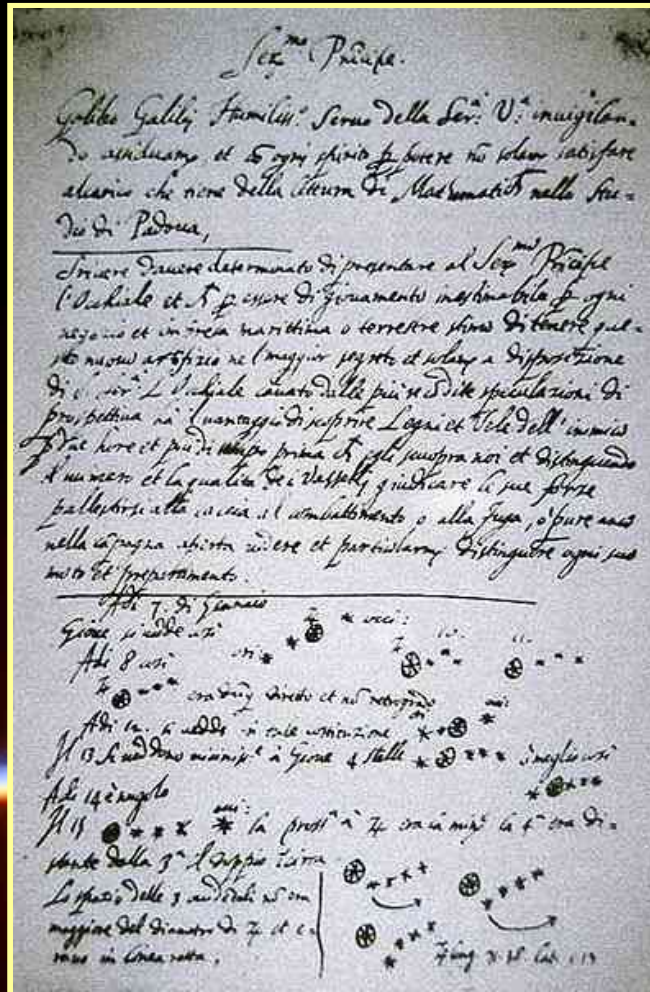 Ser.mo Principe.
Galileo Galilej Humiliss.o Servo della Ser.a V.a invigilan-
do assiduam.e et co ogni spirito p potere no solam satisfare
alcarico che tiene della lettura di Mathematica nello Stu-
dio di Padova,
Scrivere davere determinato di presentare al Ser.mo Principe
l'Occhiale et p essere di giovamento inestimabile p ogni
negozio et impresa marittima o terrestre stimo di tenere que-
sto nuovo artifizio nel maggior segreto et solam a disposizione
di S. Ser.a L'Occhiale cavato dalle più recondite speculazioni di
prospettiva ha l vantaggio di scoprire Legni et Vele dell'inimico
p due hore et più di tempo prima ch egli scuopra noi et distinguendo
il numero et la qualità dei Vasselli giudicare le sue forze
pallestirsi alla caccia al combattimento o alla fuga, o pure anco
nella capagna aperta vedere et particolarm distinguere ogni suo
moto et preparamento.
Adi 7. di Gennaio
Gione si vedde così occ:
Adi 8 così ori: 10. 11.
era diretto et no retrogrado
Adi 12. si vedde in tale costituzione
Il 13 si veddono a Giove 4 stelle meglio così
Adi 14 è nugolo
Il 15 occ: la pross.a a ♃ era la min.e la 4.a era di-
stante dalla 3.a il doppio circa
Lo spazio delle 3 occidentali no era
maggiore del diametro di ♃ et e-
rano in linea retta.
♃ long. lat. 1.13